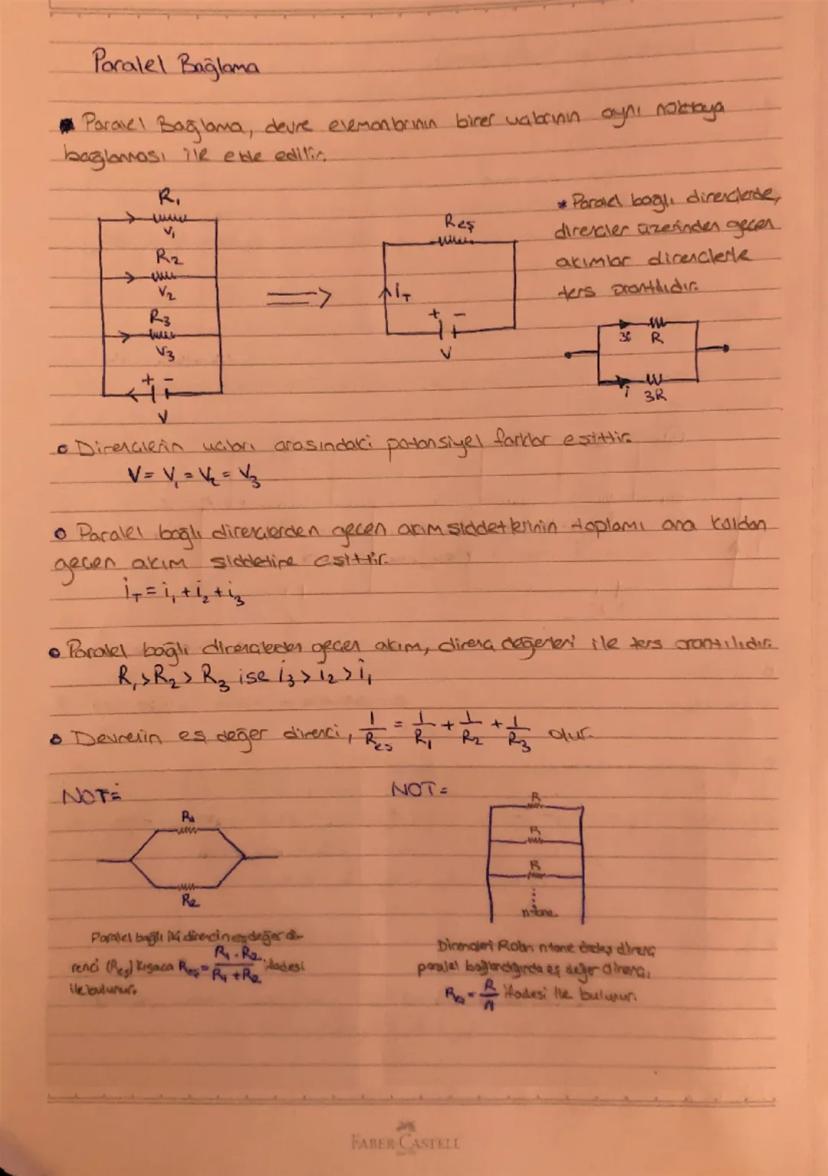 Paralel Bağlama
Paralel Bağlama, devre elemanlarının birer uçlarının aynı noktaya
bağlanması ile elde edilir.
R₁
V₁
R₂
V₂
R₃
V₃
+ -
V
Reş
iT
+ -
V
* Paralel bağlı dirençlerde,
dirençler üzerinden geçen
akımlar dirençlerle
ters orantılıdır.
3i R
i 3R
Dirençlerin uçları arasındaki potansiyel farklar eşittir.
V = V₁ = V₂ = V₃
Paralel bağlı dirençlerden geçen akım şiddetlerinin toplamı ana koldan
geçen akım şiddetine eşittir.
iT = i₁ + i₂ + i₃
Paralel bağlı dirençlerden geçen akım, direnç değerleri ile ters orantılıdır.
R₁ > R₂ > R₃ ise i₃ > i₂ > i₁
Devrenin eş değer direnci, 1/Reş = 1/R₁ + 1/R₂ + 1/R₃ olur.
NOT=
R₁
R₂
Paralel bağlı iki direncin eş değer di-
renci (Reş) kısaca Reş = R₁ . R₂ / R₁ + R₂ ifadesi
ile bulunur.
NOT=
R
R
R
n tane
Dirençleri R olan n tane özdeş direnç
paralel bağlandığında eş değer direnç,
Reş = R/n ifadesi ile bulunur.
FABER-CASTELL